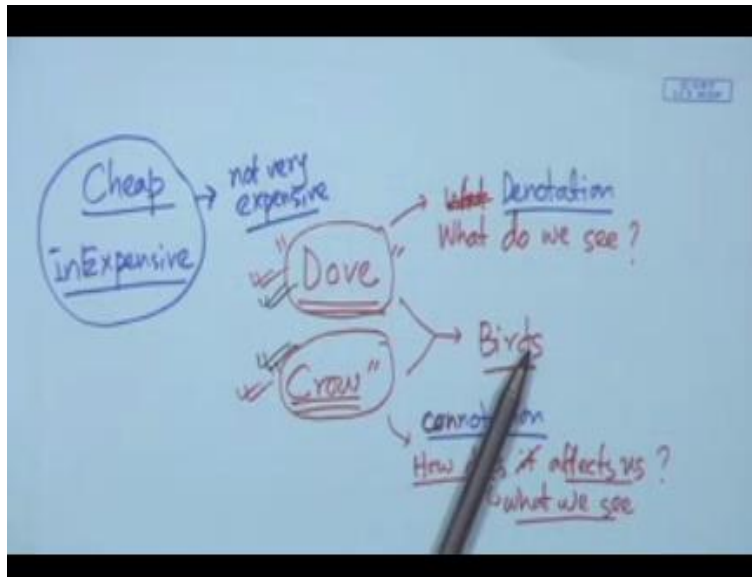 Cheap
inExpensive
not very
expensive
"Dove"
Crow"
Denotation
What do we see?
Birds
connotation
How it affects us?
what we see